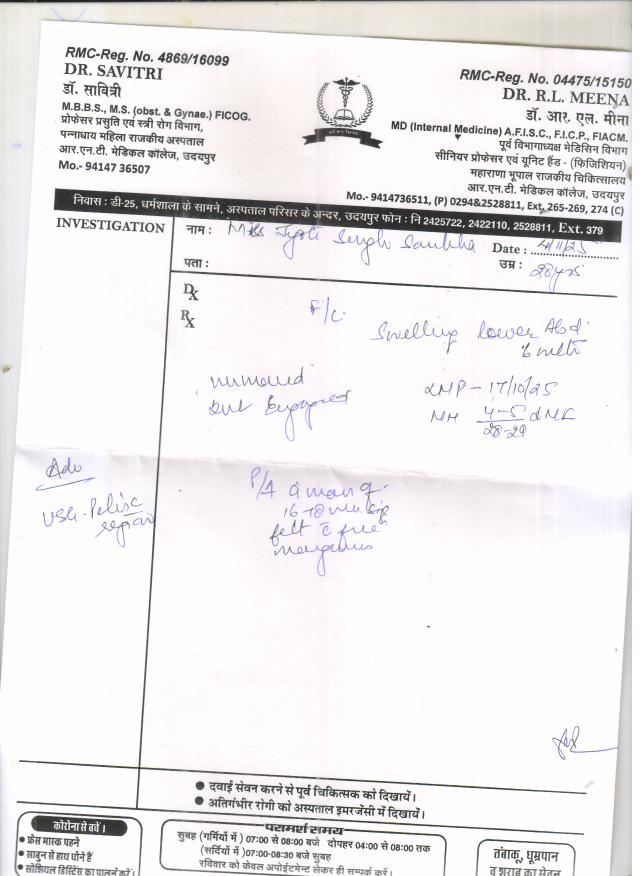 RMC-Reg. No. 4869/16099
DR. SAVITRI
डॉ. सावित्री
M.B.B.S., M.S. (obst. & Gynae.) FICOG.
प्रोफेसर प्रसुति एवं स्त्री रोग विभाग,
पन्नाधाय महिला राजकीय अस्पताल
आर.एन.टी. मेडिकल कॉलेज, उदयपुर
Mo.- 94147 36507
RMC-Reg. No. 04475/15150
DR. R.L. MEENA
डॉ. आर. एल. मीना
MD (Internal Medicine) A.F.I.S.C., F.I.C.P., FIACM.
पूर्व विभागाध्यक्ष मेडिसिन विभाग
सीनियर प्रोफेसर एवं यूनिट हैड - (फिजिशियन)
महाराणा भूपाल राजकीय चिकित्सालय
आर.एन.टी. मेडिकल कॉलेज, उदयपुर
Mo.- 9414736511, (P) 0294&2528811, Ext. 265-269, 274 (C)
निवास : डी-25, धर्मशाला के सामने, अस्पताल परिसर के अन्दर, उदयपुर फोन : नि 2425722, 2422110, 2528811, Ext. 379
INVESTIGATION
नाम : Jyoti Singh
Date : 4/11/25
पता :
उम्र : 28yrs
Dx
Rx
F/c.
Swelling lower Abd.
unmarried
but Engaged
LMP - 17/10/25
MH 4-5
28-29
Adv
USG-Pelvic
P/A a mass of
felt c free
margins
दवाई सेवन करने से पूर्व चिकित्सक को दिखायें।
अतिगंभीर रोगी को अस्पताल इमरजेंसी में दिखायें।
कोरोना से बचें।
फ्रेस मास्क पहने
साबुन से हाथ धोने हैं
सोशियल डिस्टेंस का पालन करें।
परामर्श समय
सुबह (गर्मियों में ) 07:00 से 08:00 बजे दोपहर 04:00 से 08:00 तक
(सर्दियों में ) 07:00-08:30 बजे सुबह
रविवार को केवल अपोईटमेन्ट लेकर ही सम्पर्क करें।
तंबाकू, धूम्रपान
व शराब का सेवन